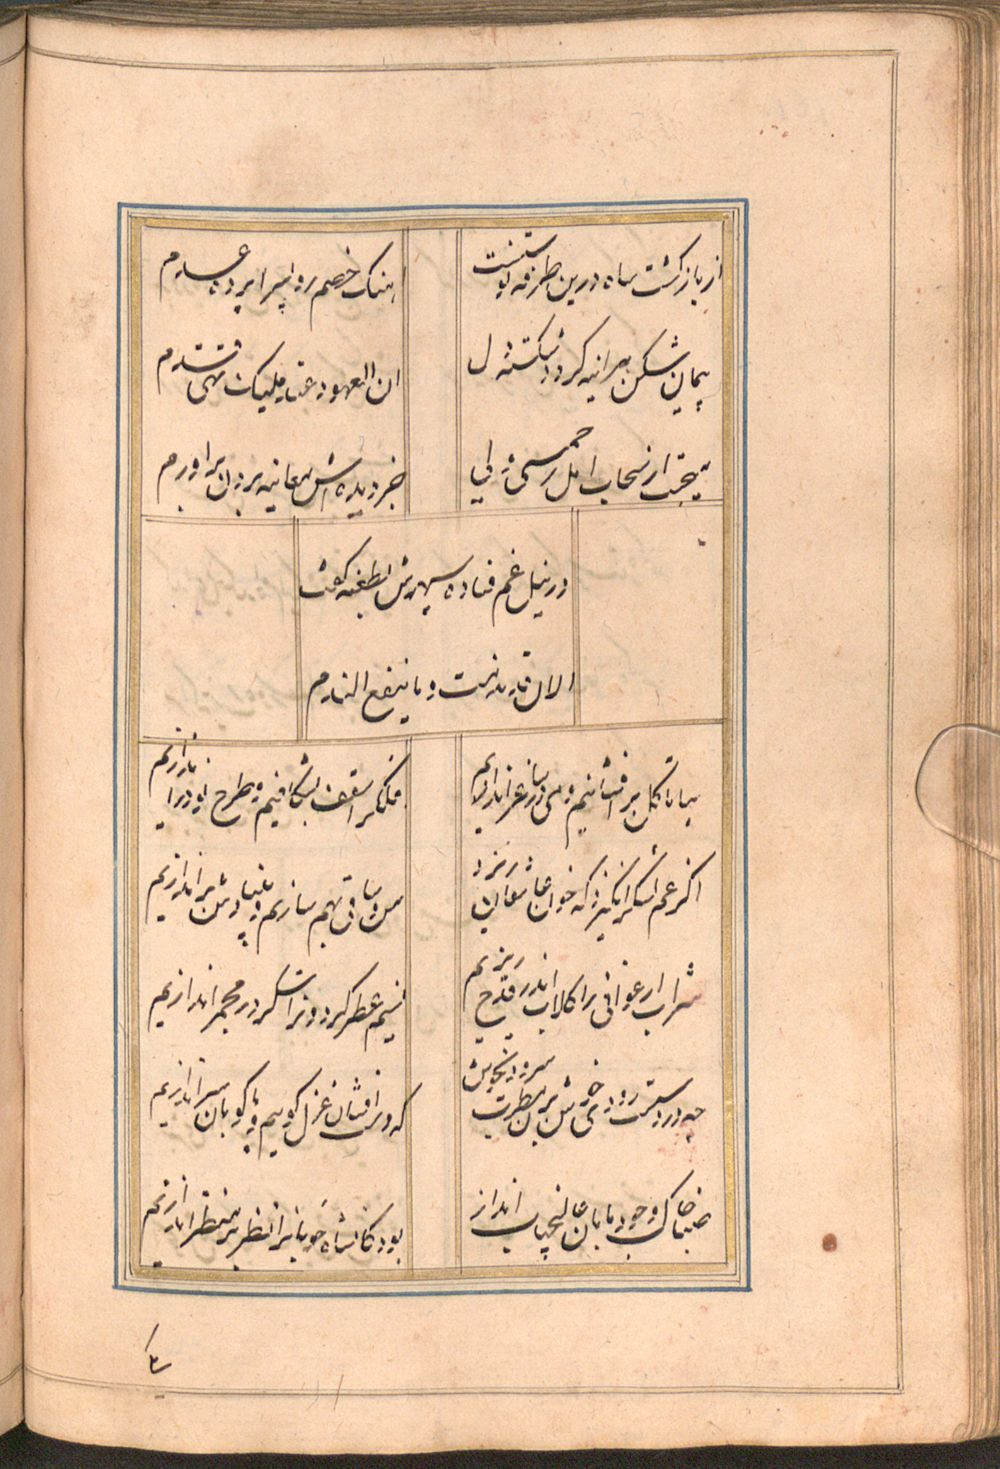 از بازکشت شاه درین طرفه توشنست
اهنک خصم رو بسراپرده عدم
پیمان شکن هرانیه کردد شکسته دل
ان العهود عند ملیک النهی ذمم
میجست از سحاب امل رحمتی ولی
جز دیده اش معاینه بیرون براورم
در نیل غم فتاده سپهرش بطعنه کفت
الان قد ندمت و ما ینفع الندم
بیا تا کل بر افشانیم و می در ساغر اندازیم
فلک را سقف بشکافیم و طرح نو در اندازیم
اکر غم لشکر انکیزد که خون عاشقان ریزد
من و ساقی بهم سازیم و بنیادش بر اندازیم
شراب ارغوانی را کلاب اندر قدح ریزیم
نسیم عطر کردون را شکر در مجمر اندازیم
چو در دستست رودی خوش بزن مطرب سرودی خوش
که دست افشان غزل کوییم و پا کوبان سر اندازیم
صبا خاک وجود ما بدان عالی جناب انداز
بود کان شاه خوبانرا نظر بر منظر اندازیم